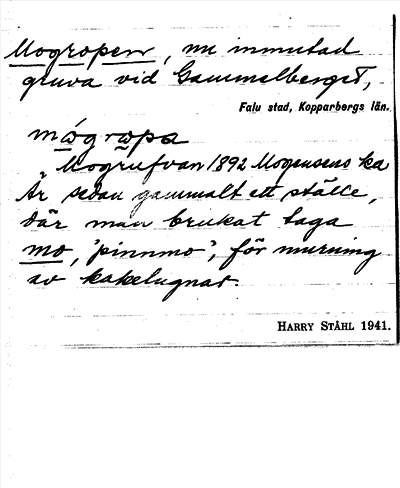 Mogropen, nu inmutad
gruva vid Gammelberget,
Falu stad, Kopparbergs län.
mógròpa
"Mogrufvan 1892 Mogensens ka
Är sedan gammalt ett ställe,
där man brukat taga
mo, 'pinnmo', för murning
av kakelugnar.
HARRY STÅHL 1941.